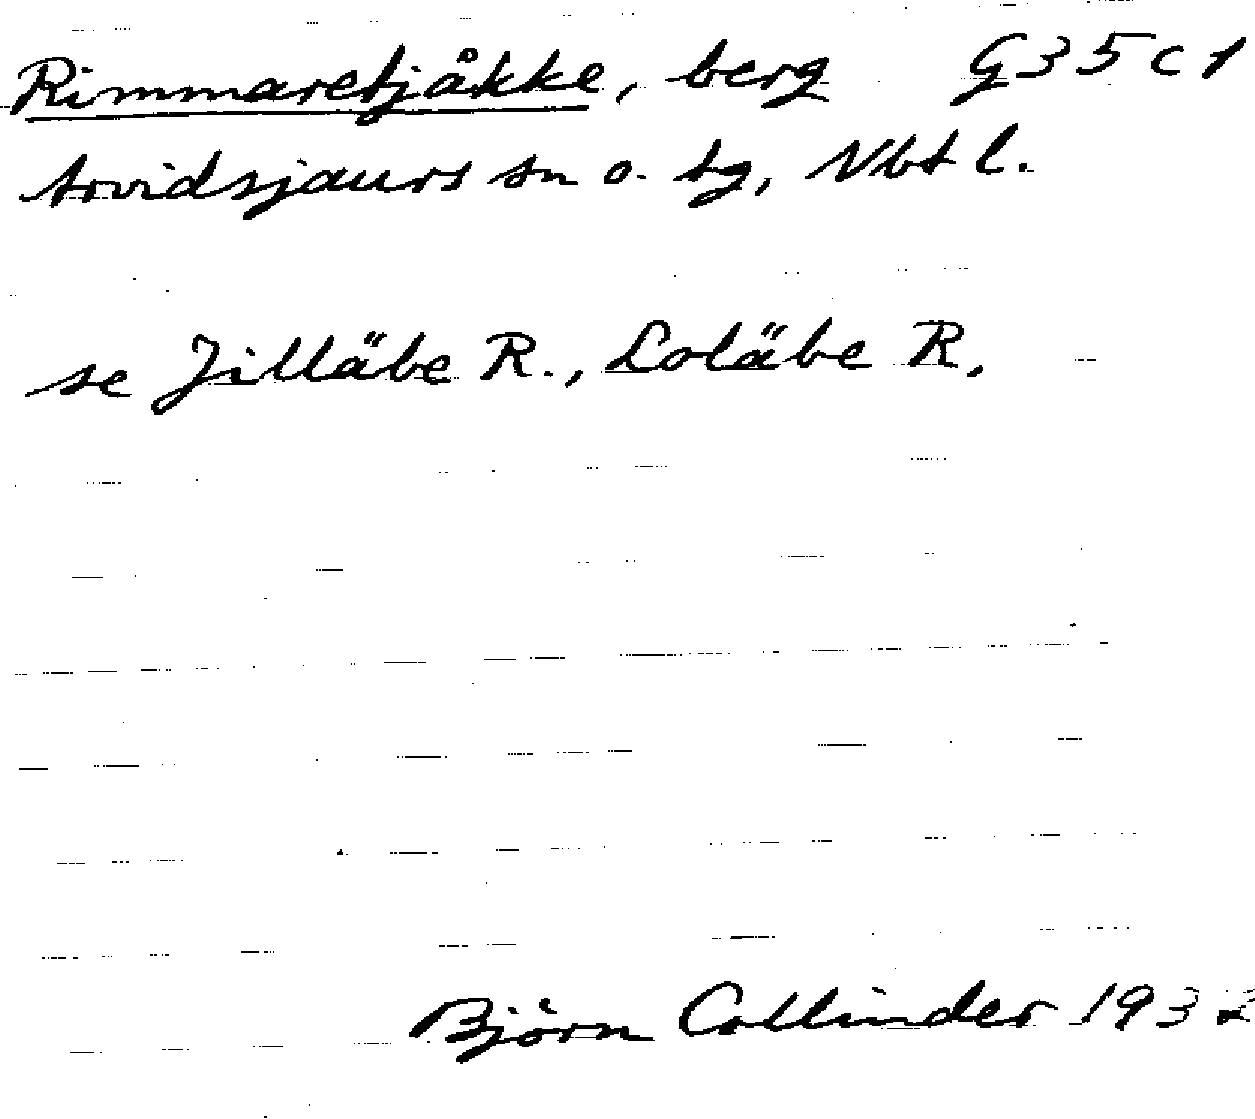 Rimmaretjåkke, berg G35c1
Arvidsjaurs sn o. tg, Vbt l.
se Jilläbe R., Loläbe R.
Björn Collinder 1932